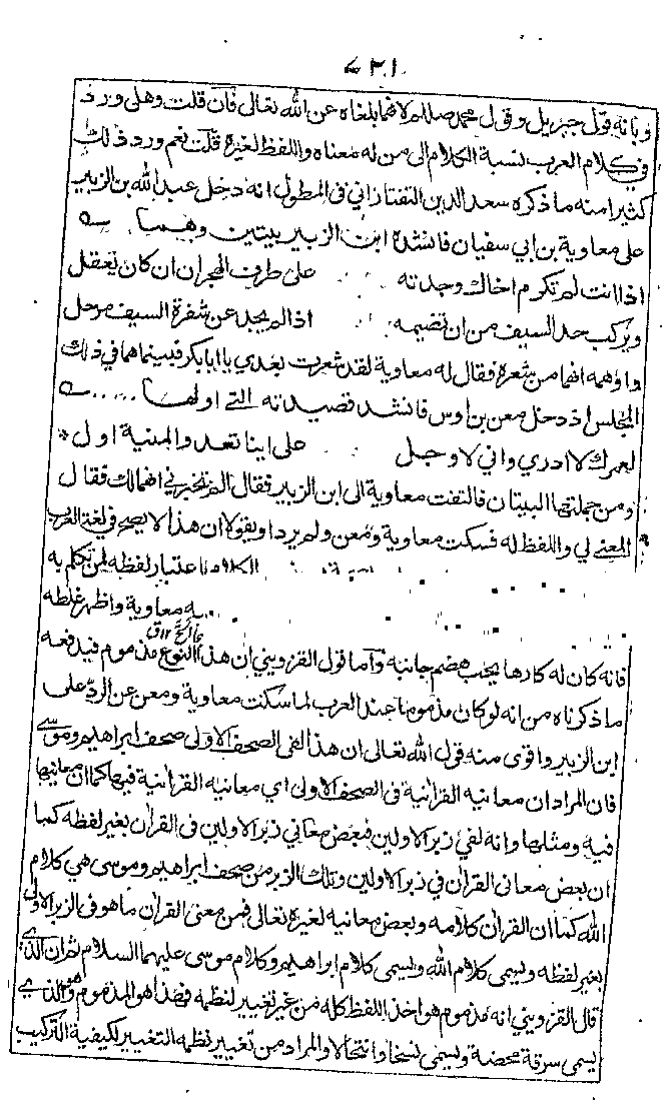 ٧٣١
وبانه قول جبريل وقول محمد صللم لانهما بلغاه عن الله تعالى فان قلت وهل ورد
في كلام العرب نسبة الكلام الى من له معناه واللفظ لغيره قلت نعم ورد ذلك
كثيرا منه ما ذكره سعد الدين التفتازاني في المطول انه دخل عبد الله بن الزبير
على معاوية بن ابي سفيان فانشده ابن الزبير بيتين وهما
اذا انت لم تكرم اخاك وجدته على طرف الهجران ان كان يعقل
ويركب حد السيف من ان تضيمه اذا لم يجد عن شفرة السيف مزحل
واوهمه انهما من شعره فقال له معاوية لقد شعرت بعدي يا ابا بكر فبينما هما في ذلك
المجلس اذ دخل معن بن اوس فانشد قصيدته التي اولها
لعمرك لا ادري واني لاوجل على اينا تعد والمنية اول
ومن جملتها البيتان فالتفت معاوية الى ابن الزبير فقال الم تخبرني انهما لك فقال
المعنى لي واللفظ له فسكت معاوية ومعن ولم يردا ويقولا ان هذا لا يصح في لغة العرب
اعتبار لفظه لمن تكلم به
معاوية واظهر غلطه
فانه كان له كارها يحب هضم جانبه واما قول القزويني ان هذا النوع مذموم فيدفعه
ما ذكرناه من انه لو كان مذموما عند العرب لما سكت معاوية ومعن عن الرد على
ابن الزبير واقوى منه قول الله تعالى ان هذا لفي الصحف الاولى صحف ابراهيم وموسى
فان المراد ان معانيه القرآنية في الصحف الاولى اي معانيه القرآنية فيها كما ان معانيها
فيه ومثلها وانه لفي زبر الاولين فبعض معاني زبر الاولين في القرآن بغير لفظه كما
ان بعض معاني القرآن في زبر الاولين وتلك الزبر من صحف ابراهيم وموسى هي كلام
الله كما ان القرآن كلامه وبعض معانيه لغيره تعالى فمن معنى القرآن ما هو في الزبر الاولى
بغير لفظه ويسمى كلام الله ويسمى كلام ابراهيم وكلام موسى عليهما السلام ثم ان الذي
قال القزويني انه مذموم هو اخذ اللفظ كله من غير تغيير لنظمه فهذا هو المذموم وهو الذي
يسمى سرقة محضة ويسمى نسخا وانتحالا والمراد من تغيير نظمه التغيير لكيفية التركيب